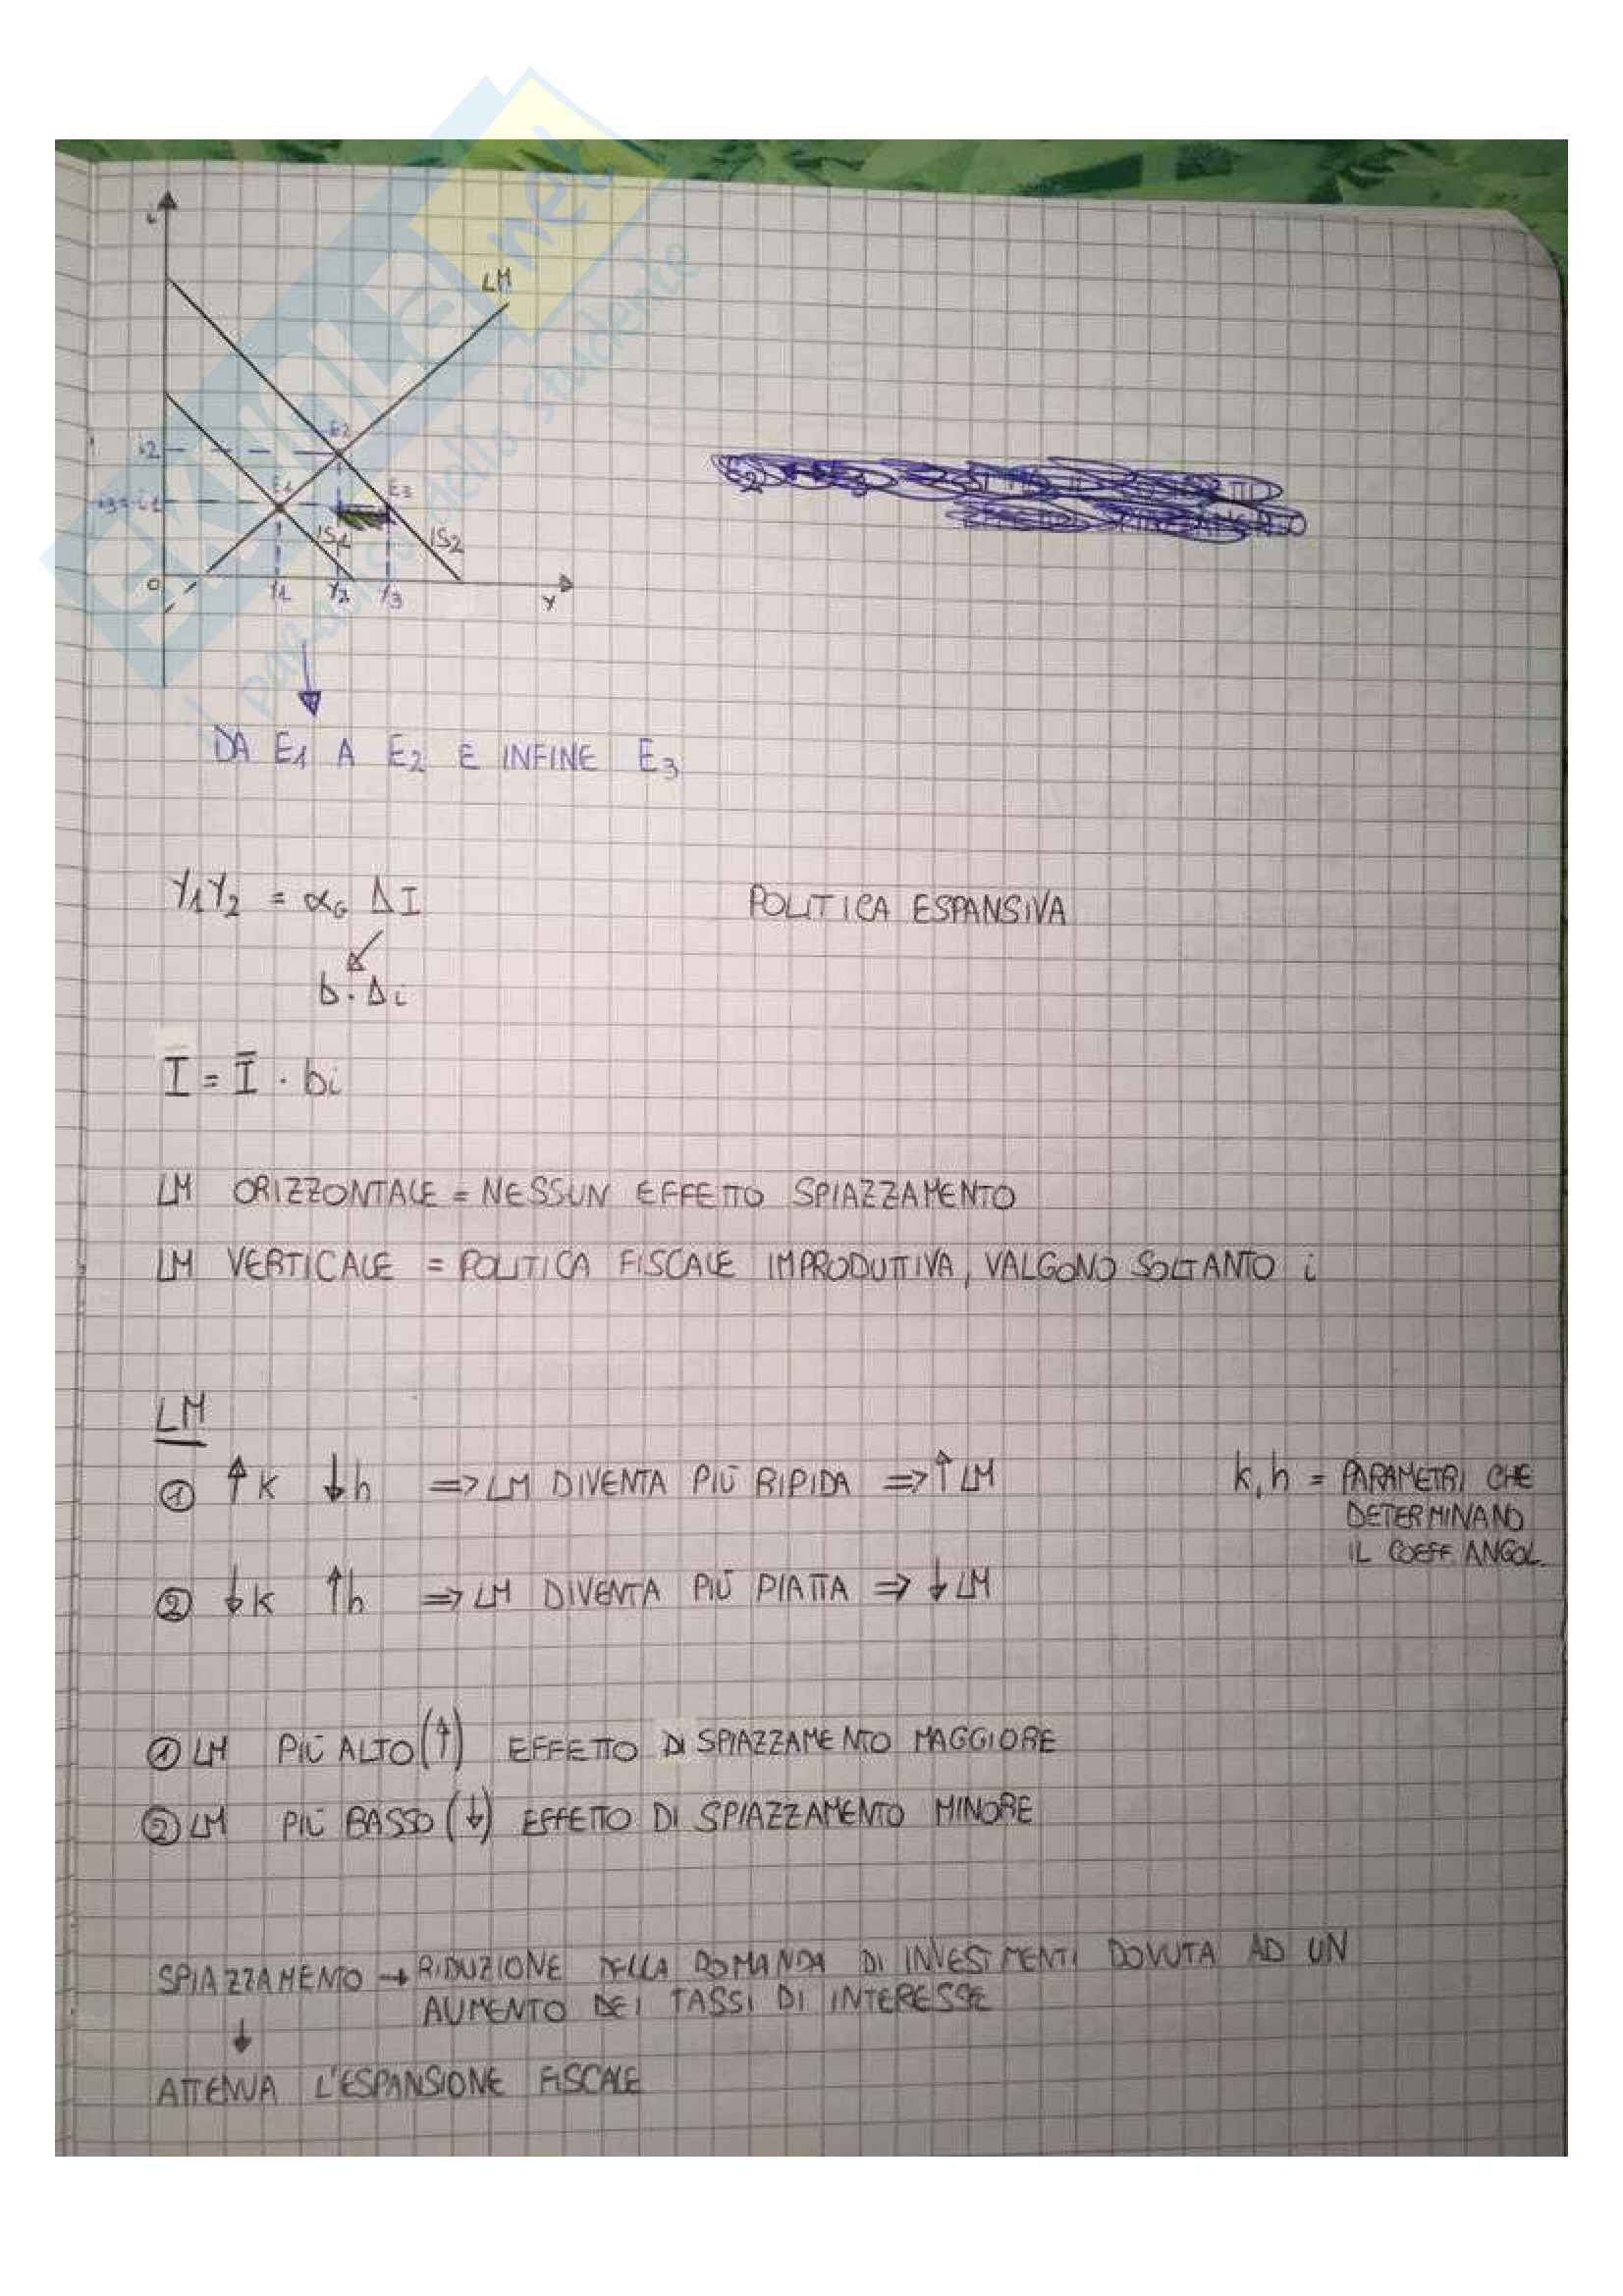 i
LM
i2
E2
E1
E3
i3=i1
IS1
IS2
0
Y1 Y2 Y3
Y
DA E1 A E2 E INFINE E3
Y1Y2 = αG ΔI
POLITICA ESPANSIVA
b. Δi
I = Ī . bi
LM ORIZZONTALE = NESSUN EFFETTO SPIAZZAMENTO
LM VERTICALE = POLITICA FISCALE IMPRODUTTIVA, VALGONO SOLTANTO i
LM
① ↑K ↓h => LM DIVENTA PIÙ RIPIDA => ↑LM
k, h = PARAMETRI CHE
DETERMINANO
IL COEFF ANGOL.
② ↓K ↑h => LM DIVENTA PIÙ PIATTA => ↓LM
① LM PIÙ ALTO (↑) EFFETTO DI SPIAZZAMENTO MAGGIORE
② LM PIÙ BASSO (↓) EFFETTO DI SPIAZZAMENTO MINORE
SPIAZZAMENTO → RIDUZIONE DELLA DOMANDA DI INVESTIMENTI DOVUTA AD UN
AUMENTO DEI TASSI DI INTERESSE
↓
ATTENUA L'ESPANSIONE FISCALE